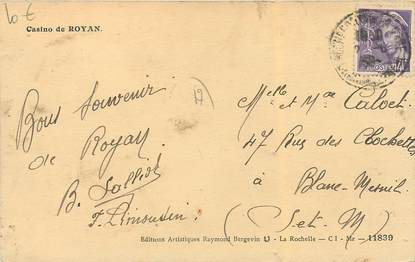 10 €
Casino de ROYAN.
POSTES
Bons Souvenir
de Royan
B. Lalliot
F. Limousin
72
Melle et Mr Caloch
47 Rue des Clochettes
à
Blanc-Mesnil
(Set-M)
Editions Artistiques Raymond Bergevin - La Rochelle - C1 - Mr - 11839